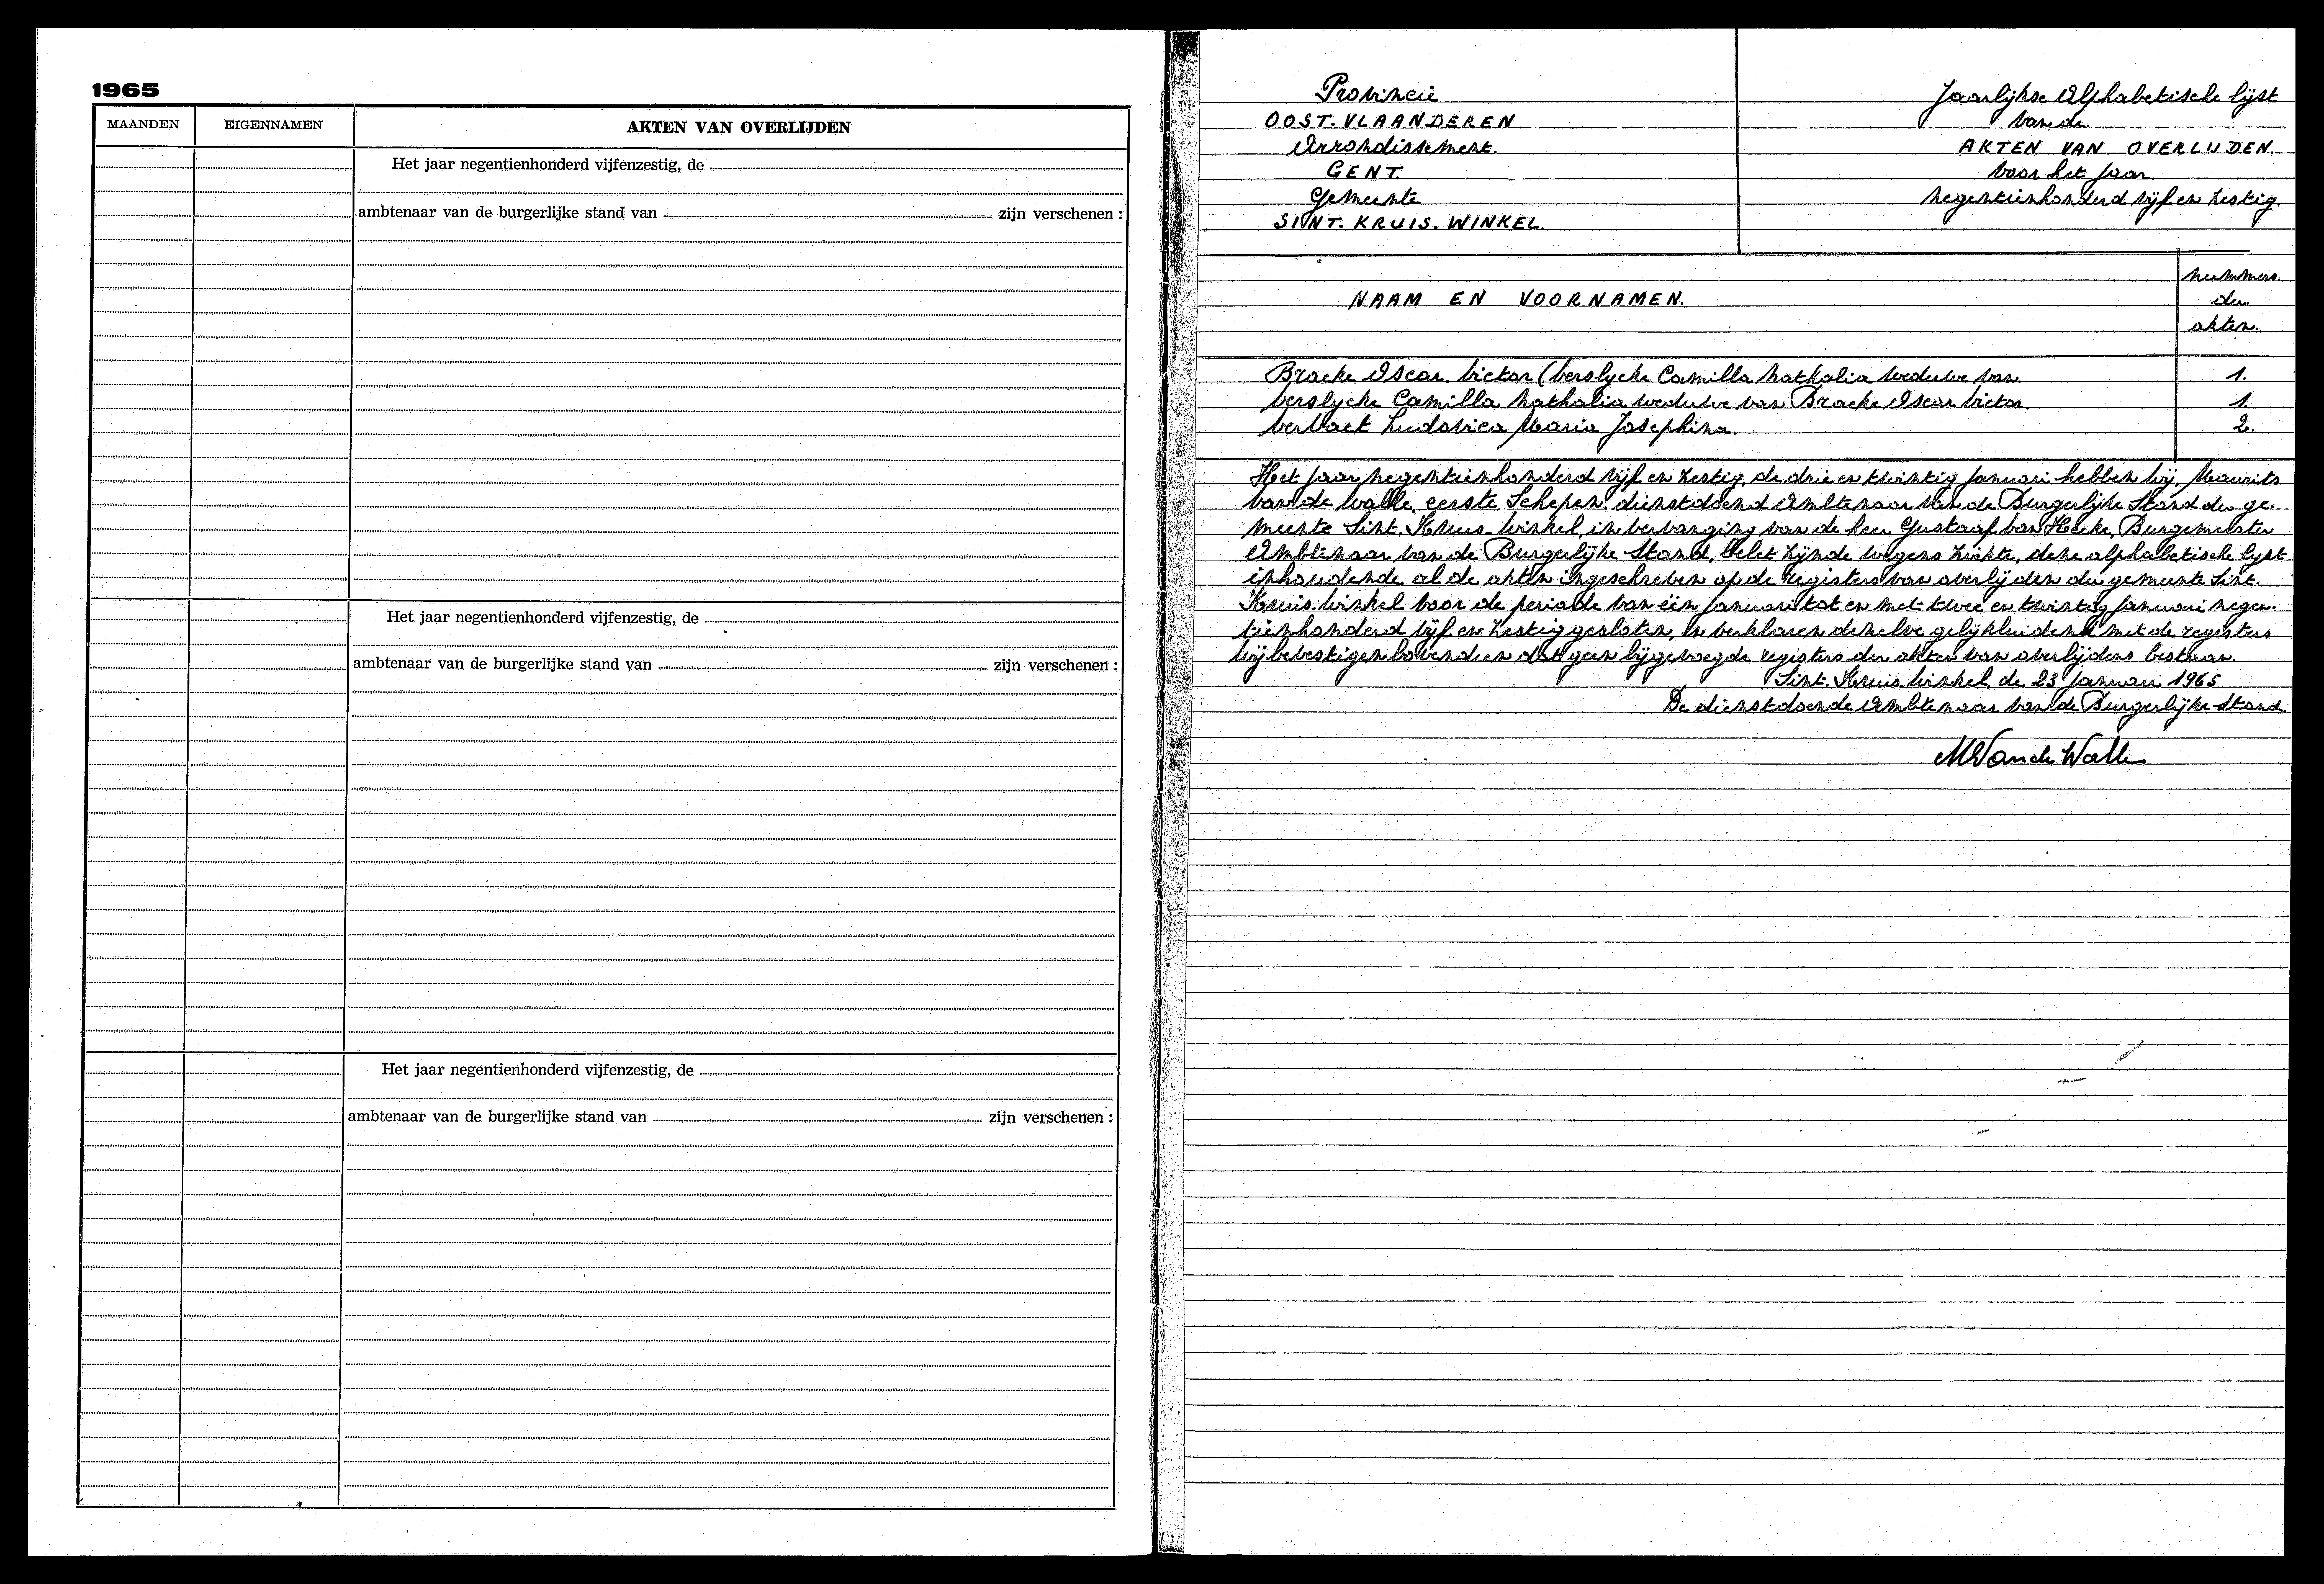 1965
MAANDEN EIGENNAMEN AKTEN VAN OVERLIJDEN
Het jaar negentienhonderd vijfenzestig, de
ambtenaar van de burgerlijke stand van zijn verschenen :
Het jaar negentienhonderd vijfenzestig, de
ambtenaar van de burgerlijke stand van zijn verschenen :
Het jaar negentienhonderd vijfenzestig, de
ambtenaar van de burgerlijke stand van zijn verschenen :
Provincie
OOST. VLAANDEREN
Arrondissement.
GENT.
Gemeente
SINT. KRUIS. WINKEL.
Jaarlijkse Alphabetische lijst
van de
AKTEN VAN OVERLIJDEN.
voor het jaar.
negentienhonderd vijf en zestig.
NAAM EN VOORNAMEN.
nummers.
der
akten.
Bracke Oscar. Victor (Verslycke Camilla Nathalia weduwe van. 1.
Verslycke Camilla Nathalia weduwe van Bracke Oscar Victor. 1.
Vervaet Ludovica Maria Josephina. 2.
Het jaar negentienhonderd vijf en zestig, de drie en twintig Januari hebben wij, Maurits
Van de Walle, eerste Schepen, dienstdoend Ambtenaar van de Burgerlijke Stand der ge-
meente Sint. Kruis. Winkel, in vervanging van de heer Gustaaf Van Hecke, Burgemeester
Ambtenaar van de Burgerlijke Stand, belet zijnde wegens ziekte, deze alphabetische lijst
inhoudende al de akten ingeschreven op de registers van overlijden der gemeente Sint.
Kruis. Winkel voor de periode van één Januari tot en met twee en twintig Januari negen-
tienhonderd vijf en zestig gesloten, en verklaren dezelve gelijkluidend met de registers
Wij bevestigen bovendien dat geen bijgevoegde registers der akten van overlijdens bestaan.
Sint. Kruis. Winkel, de 23 Januari 1965
De dienstdoende Ambtenaar van de Burgerlijke Stand.
M Van de Walle